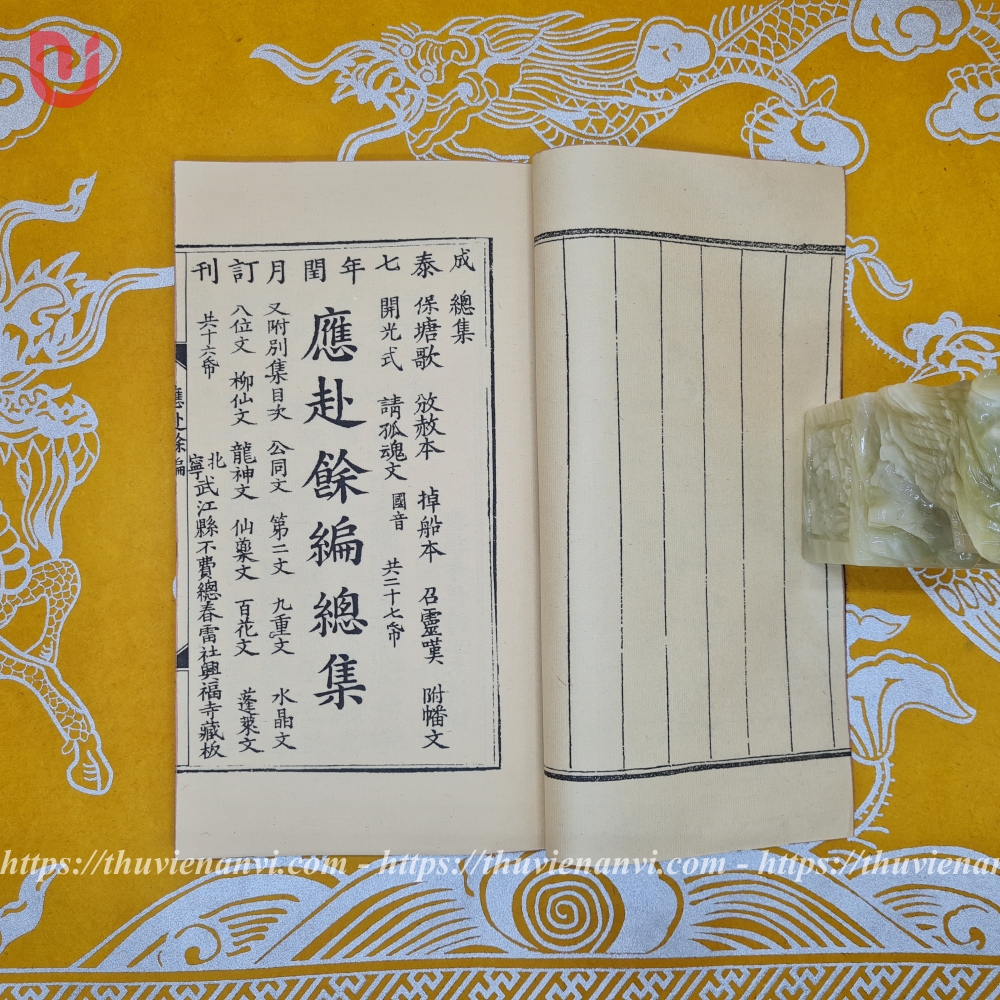 成泰七年閏月訂刊
總集
保塘歌 放赦本 掉船本 召靈嘆 附幡文
開光式 請孤魂文 國音 共二十七帋
應赴餘編總集
又附別集目次 公同文 第二文 九重文 水晶文
八位文 柳仙文 龍神文 仙藥文 百花文 蓬萊文
共十六帋 北寧武江縣不費總春雷社興福寺藏板
應赴餘編
https://thuvienanvi.com - https://thuvienanvi.com - https://thuvienan